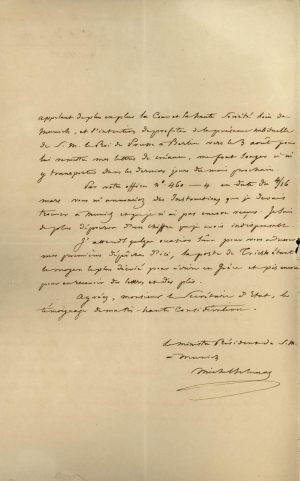 appelant de plus en plus la Cour et la haute Société loin de
Munich, et l'intention de profiter de la présence habituelle
de S. M. le Roi de Prusse à Berlin vers le 3 août pour
lui remettre mes lettres de créance, me font songer à m'
y transporter dans les derniers jours du mois prochain.
Par votre office Nº 460 — 4 en date du 4/16
mars vous m'annonciez des Instructions que je devais
trouver à Munich et que je n'ai pas encore reçues. Je suis
de plus dépourvu d'un chiffre qui m'est indispensable.
J'attends quelque occasion sûre pour vous adresser
mes premières dépêches d'ici, la poste de Trieste étant
le moyen le plus dévié pour écrire en Grèce et pis encore
pour en recevoir des lettres et des plis.
Agréez, monsieur le Secrétaire d'Etat, le
témoignage de ma très-haute Considération.
Le ministre Résident de S. M.
à Munich